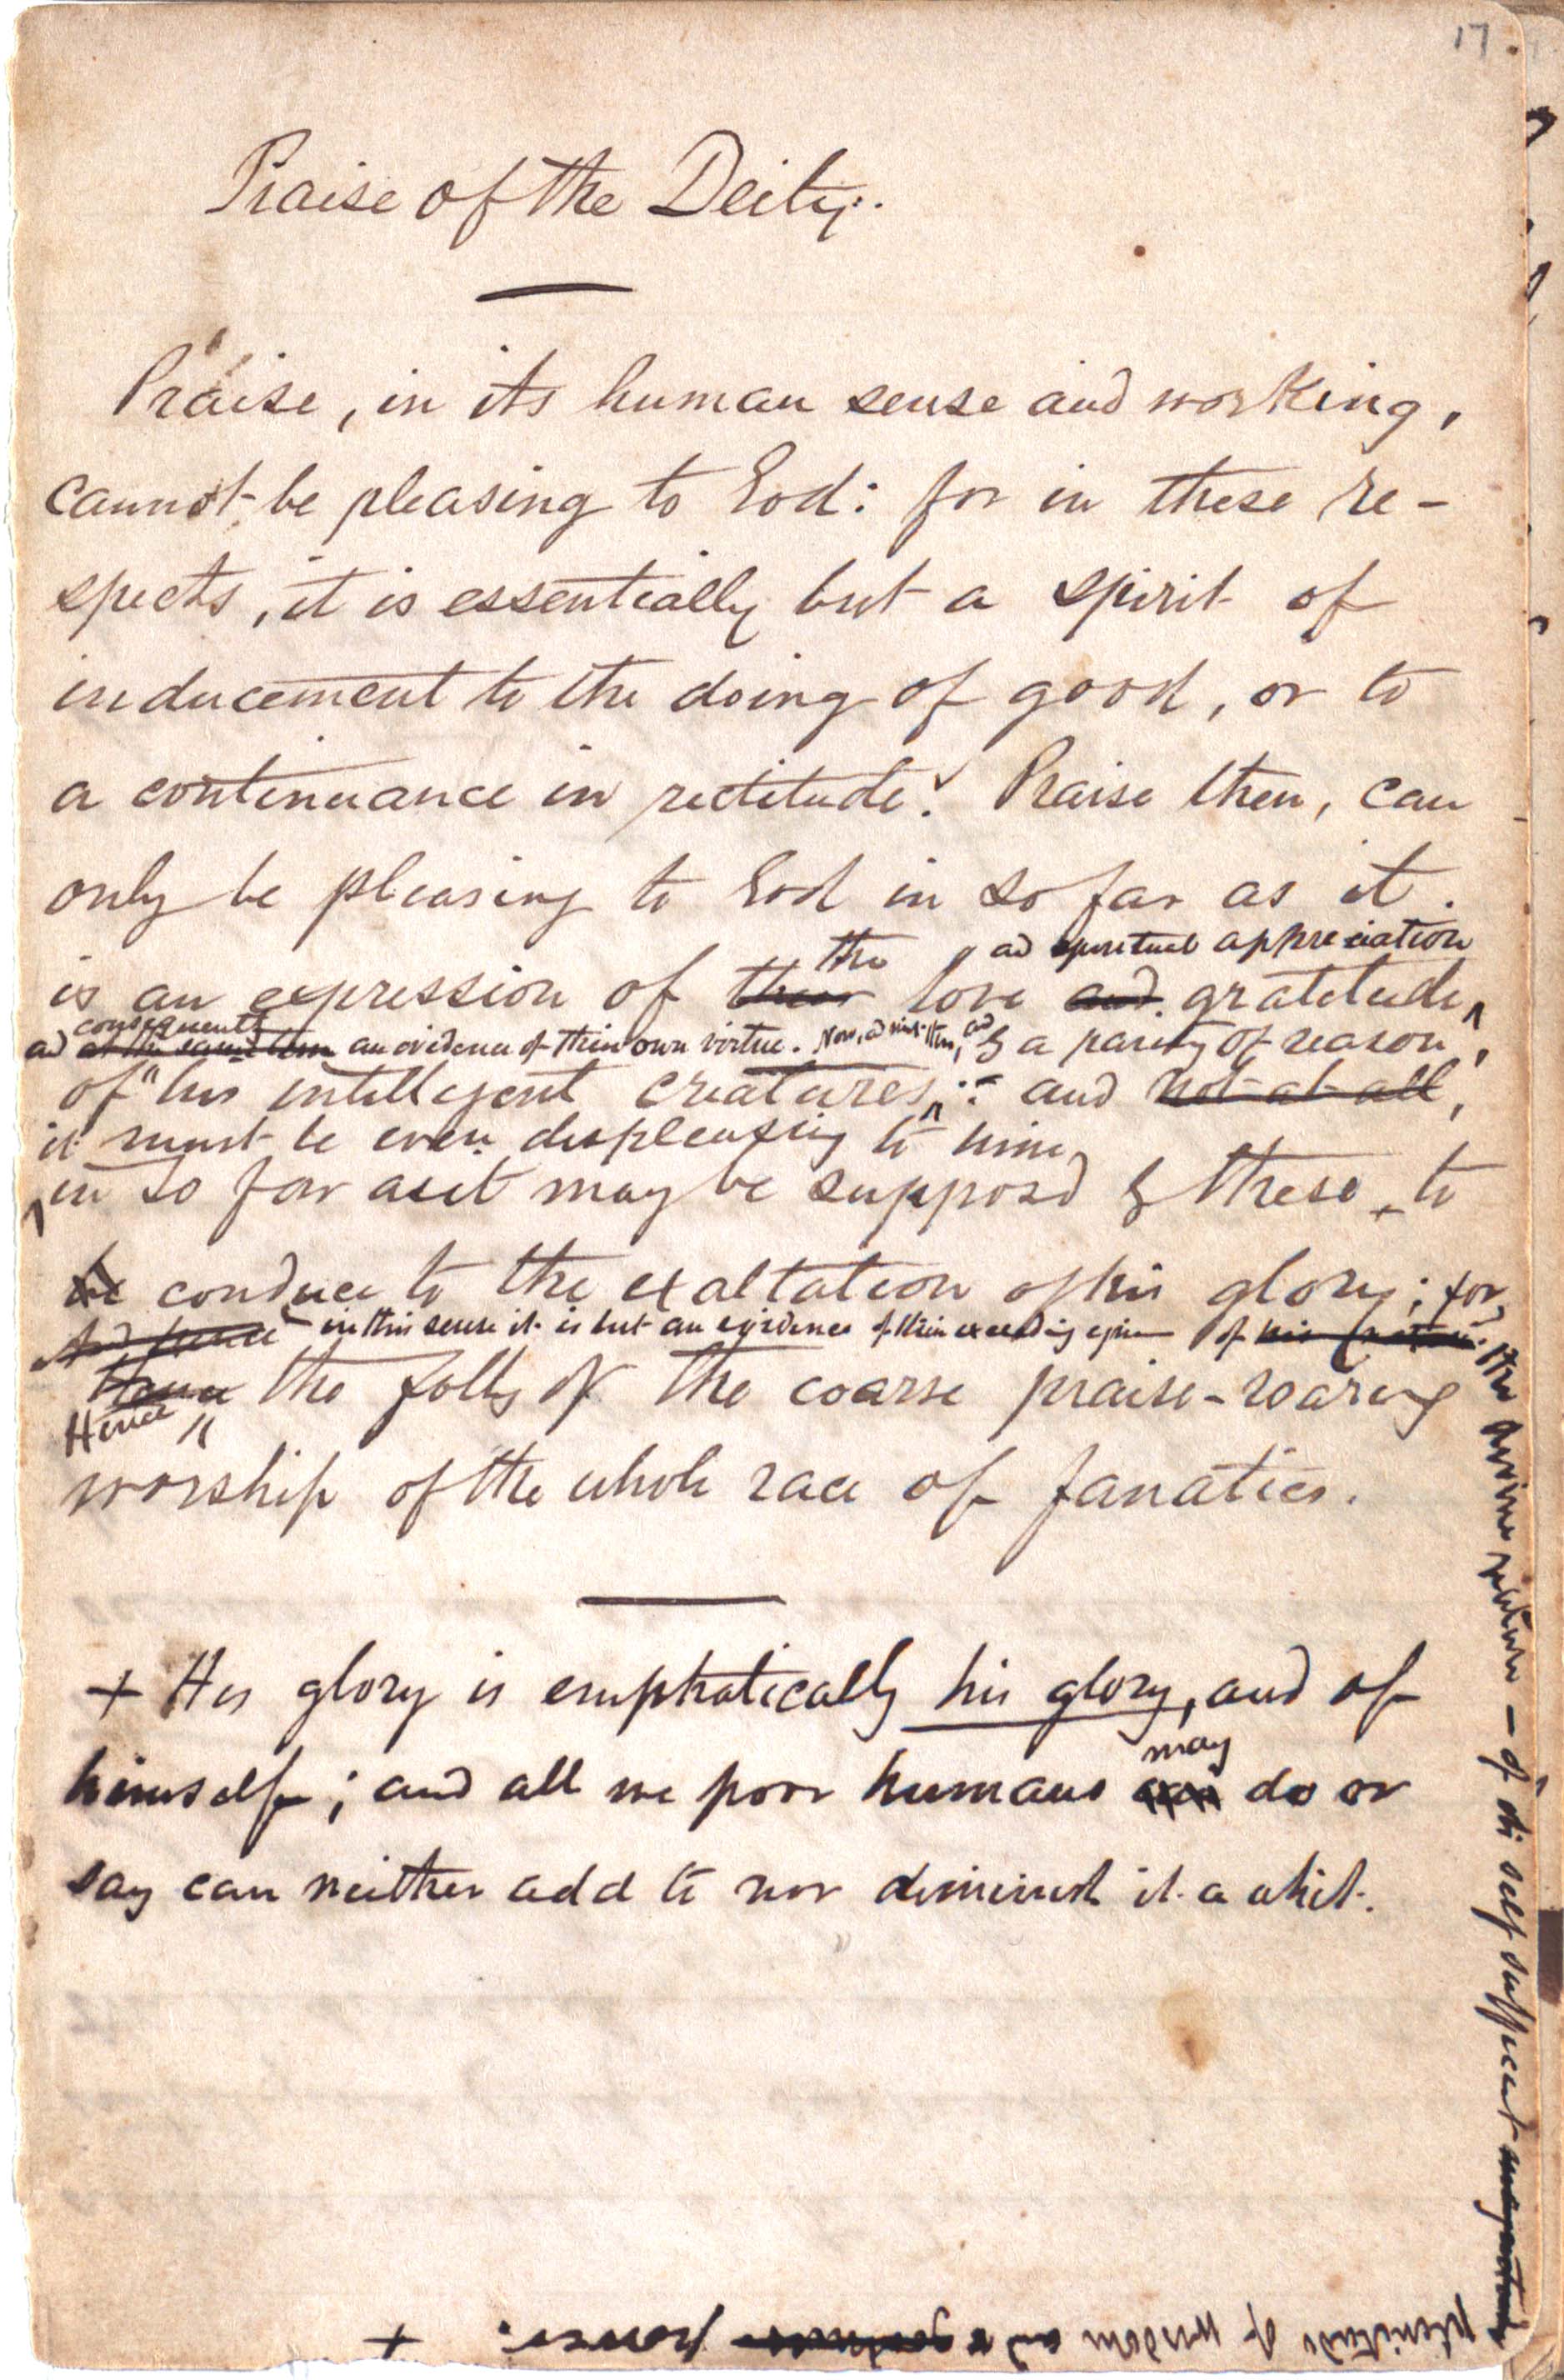 17
Praise of the Deity.
Praise, in its human sense and working,
cannot be pleasing to God: for in these re-
spects, it is essentially but a spirit of
inducement to the doing of good, or to
a continuance in rectitude. Praise then, can
only be pleasing to God in so far as it
the and spiritual appreciation
is an expression of their love and gratitude,
consequently
ad at the same time an evidence of their own virtue. Now, and by a parity of reason,
of his intelligent creatures; and not at all,
it must be even displeasing to him
in so far as it may be supposd by these + to
be conduce to the exaltation of his glory; for,
And hence in this sense it is but an evidence of their exceeding of his
Hence the folly of the coarse praise-roaring
Hence
worship of the whole race of fanatics.
+ His glory is emphatically his glory, and of
may
himself; and all we poor humans can do or
say can neither add to nor diminish it a whit.
the divine nature - of its self sufficient
plenitude of wisdom and goodness power. +